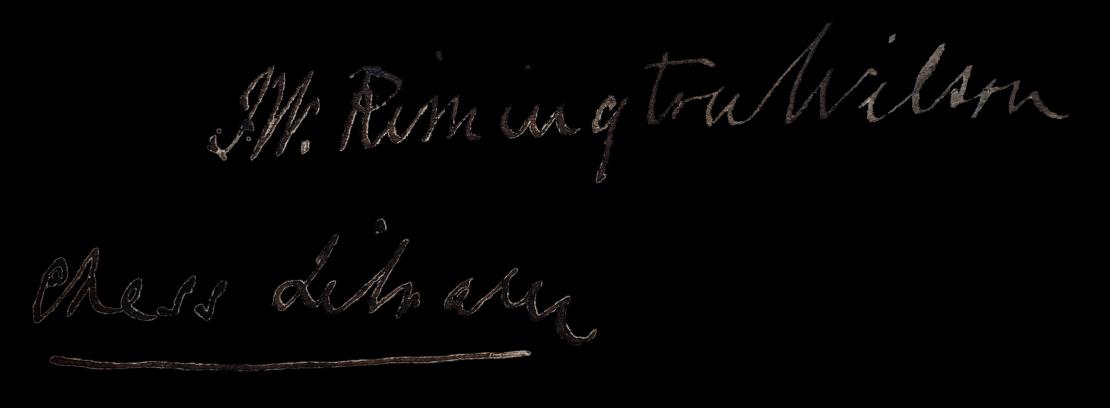 J.W. Rimington Wilson
Chess Library